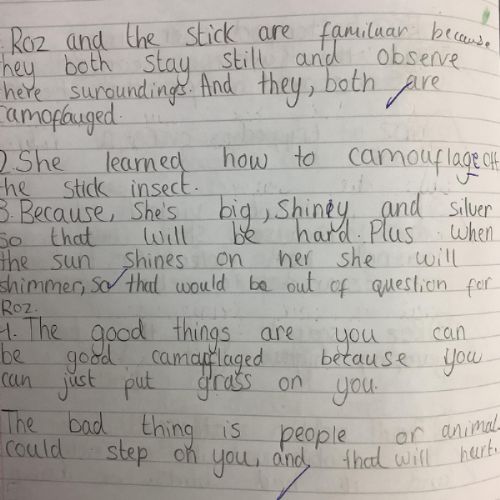 . Roz and the stick are familuar because,
hey both stay still and observe
here suroundings. And they, both are
camoflauged.
2. She learned how to camouflage off
the stick insect.
3. Because, She's big, Shiney and silver
so that will be hard. Plus when
the sun shines on her she will
shimmer, so that would be out of question for
Roz.
4. The good things are you can
be good camaflaged because you
can just put grass on you.
The bad thing is people or animal
could step on you, and that will hurt.